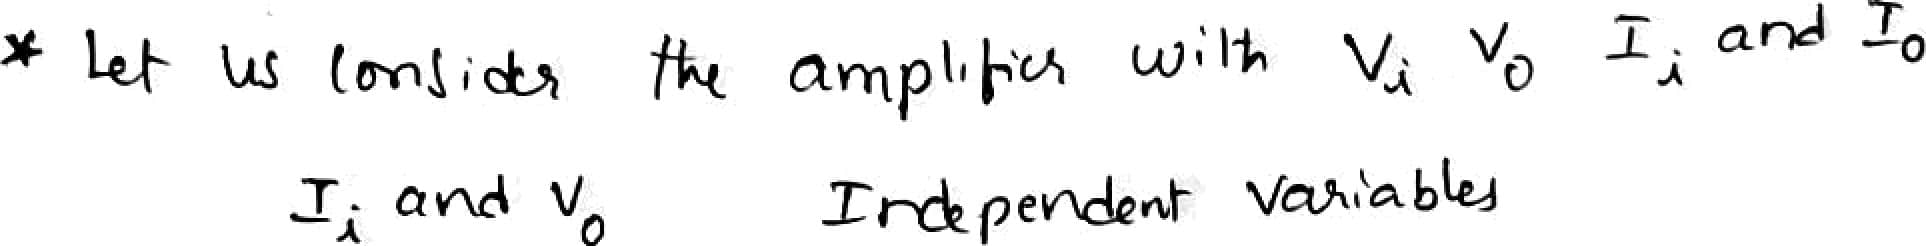 * Let us consider the amplifier with Vi Vo Ii and Io
Ii and Vo Independent variables